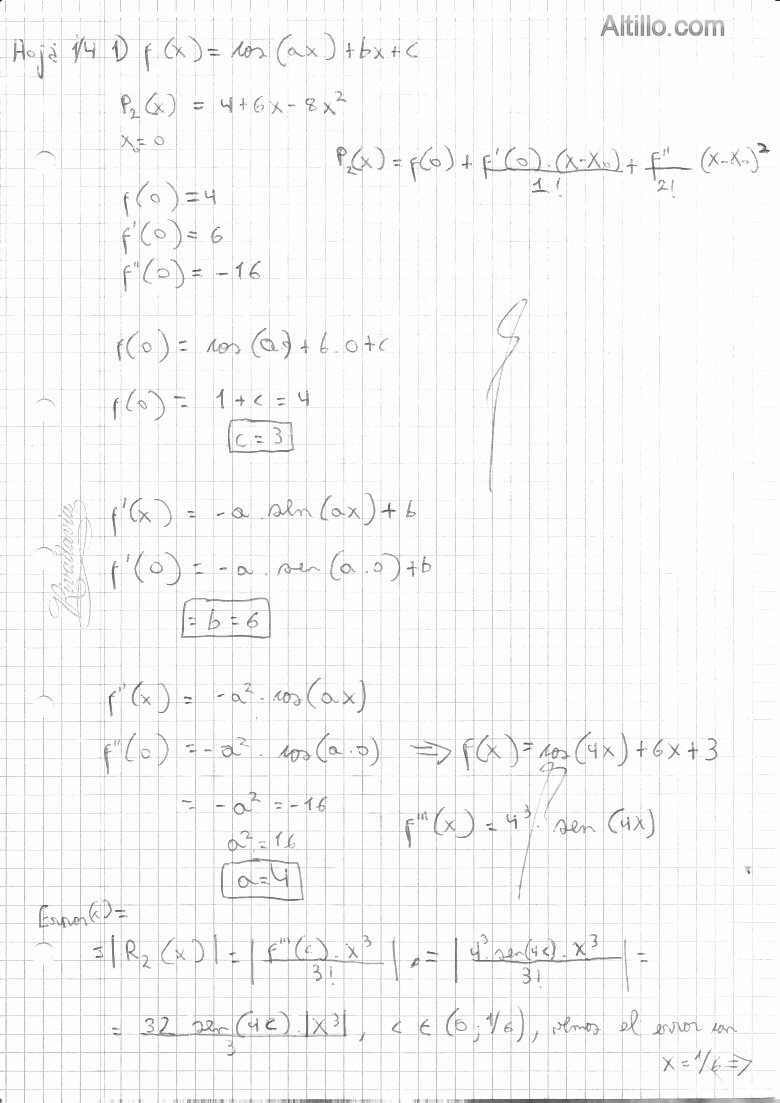 Altillo.com
Hoja 1/4 1) f(x) = cos(ax) + bx + c
P₂(x) = 4 + 6x - 8x²
x₀ = 0
P₂(x) = f(0) + f'(0).(x-x₀)/1! + f''/2! (x-x₀)²
f(0) = 4
f'(0) = 6
f''(0) = -16
f(0) = cos(a.0) + b.0 + c
f(0) = 1 + c = 4
c = 3
Rivadavia
f'(x) = -a . sen(ax) + b
f'(0) = -a . sen(a.0) + b
= b = 6
f''(x) = -a² . cos(ax)
f''(0) = -a² . cos(a.0) ⟹ f(x) = cos(4x) + 6x + 3
= -a² = -16
f'''(x) = 4³ . sen(4x)
a² = 16
a = 4
Error(x) =
= |R₂(x)| = |f'''(c) . x³/3!| = |4³ . sen(4c) . x³/3!| =
= 32 sen(4c) . |x³|/3, c ∈ (0; 1/6), el error con
x = 1/6 ⟹